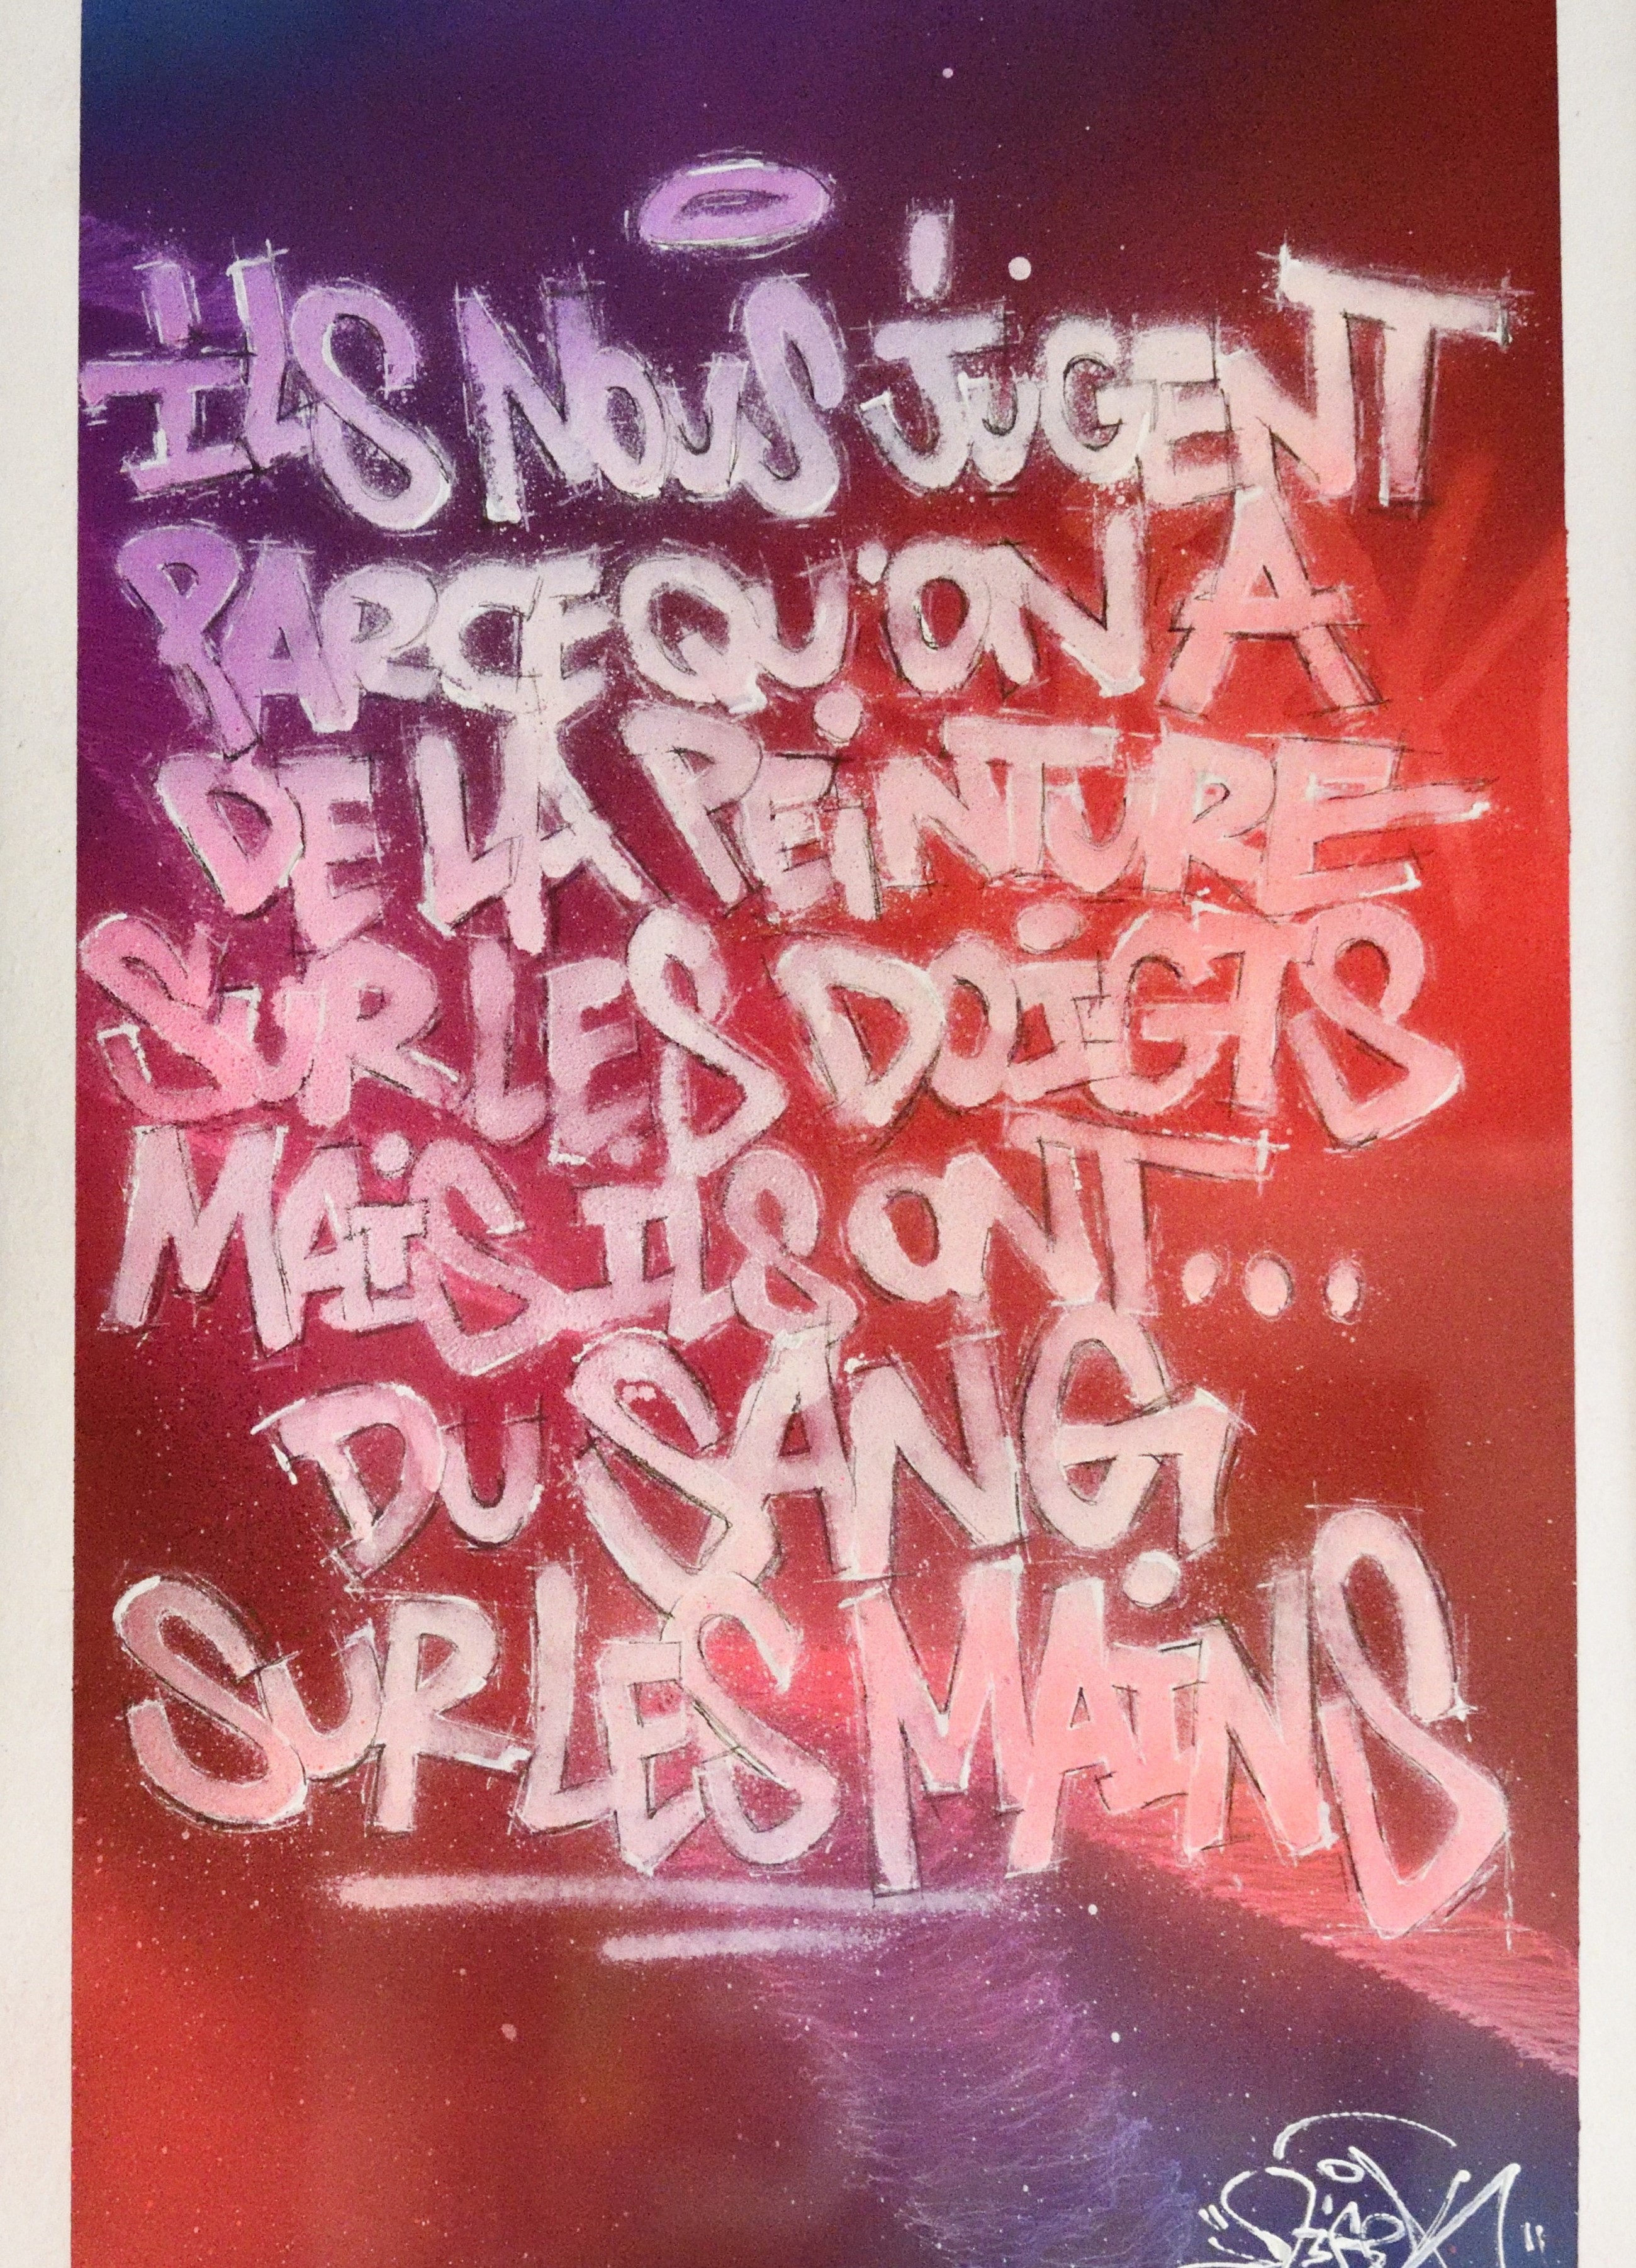 iLS NOUS JUGENT
PARCEQU'ON A
DE LA PEiNTURE
SUR LES DOiGTS
MAiS ILS ONT...
DU SANG
SUR LES MAiNS